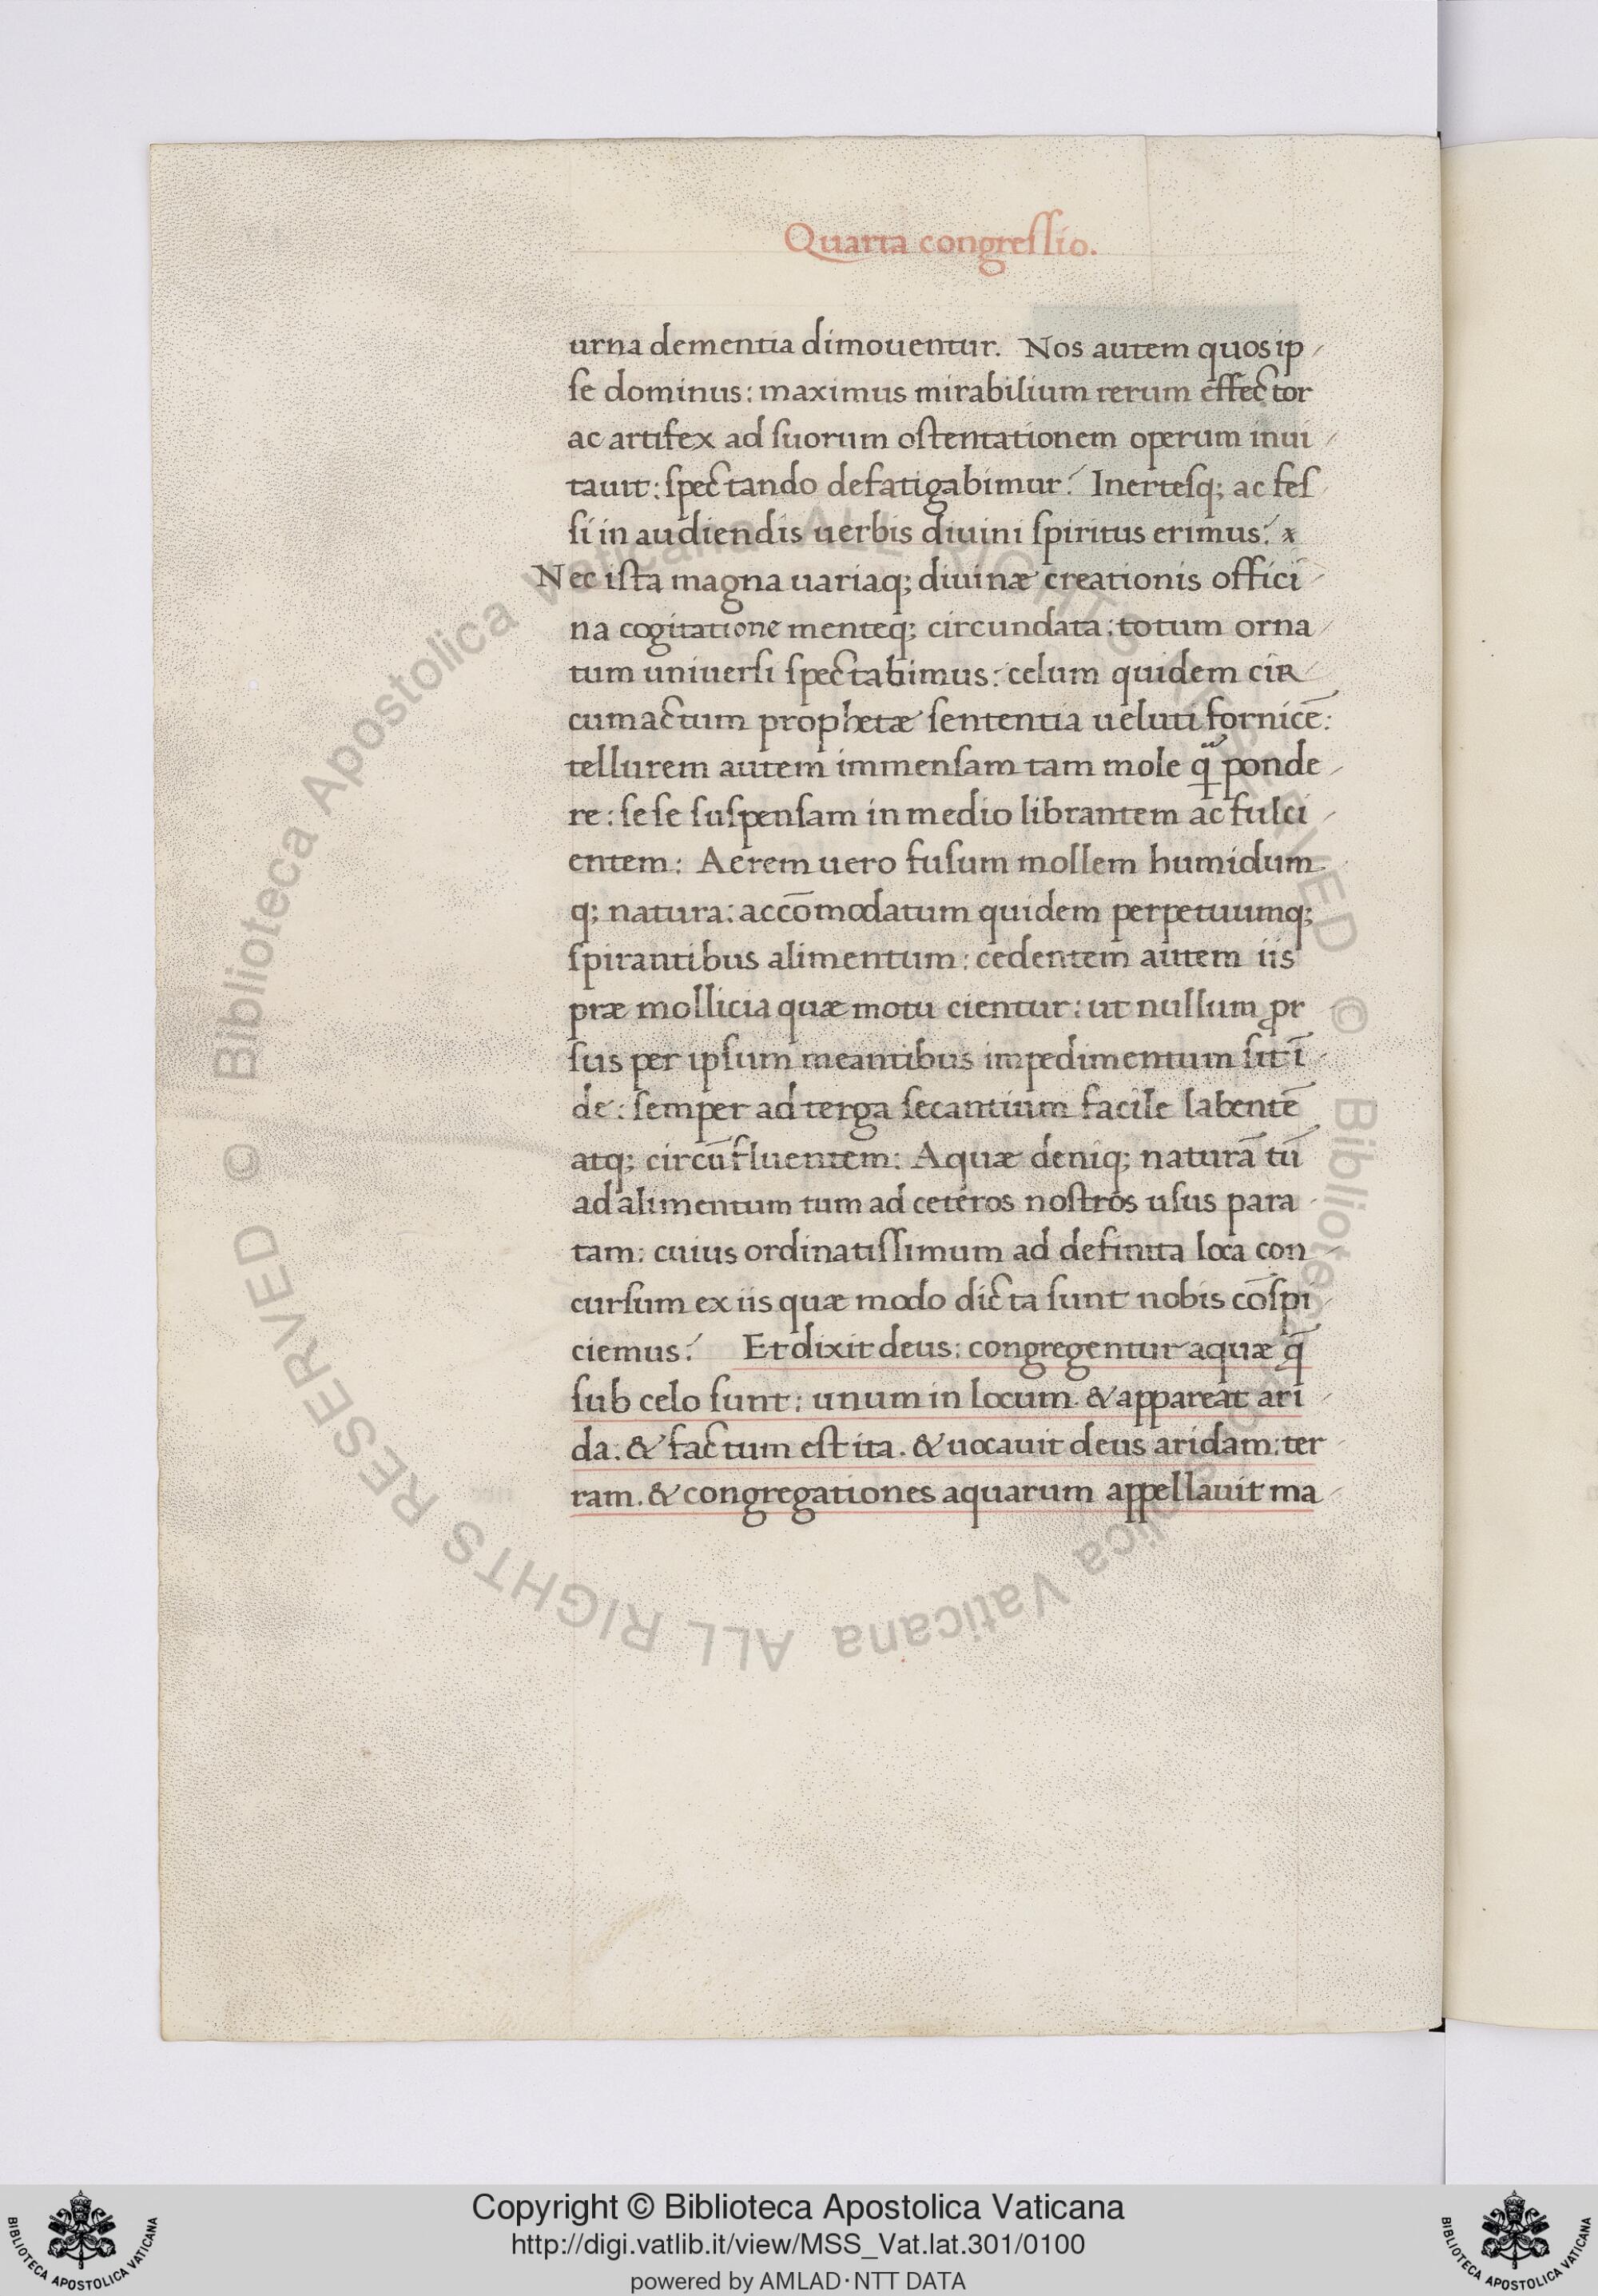 Quarta congreſſio.
urna dementia dimouentur. Nos autem quos ip
ſe dominus: maximus mirabilium rerum effector
ac artifex ad ſuorum oſtentationem operum inui
tauit: ſpectando defatigabimur? Inerteſq; ac feſ
ſi in audiendis uerbis diuini ſpiritus erimus? x
Nec iſta magna uariaq; diuinæ creationis offici
na cogitatione menteq; circundata: totum orna
tum uniuerſi ſpectabimus: celum quidem cir
cumactum prophetæ ſententia ueluti fornicē:
tellurem autem immenſam tam mole q̃ ponde
re: ſe ſe ſuſpenſam in medio librantem ac fulci
entem: Aerem uero fuſum mollem humidum
q; natura: accōmodatum quidem perpetuumq;
ſpirantibus alimentum: cedentem autem iis
præ mollicia quæ motu cientur: ut nullum ꝓr
ſus per ipſum meantibus impedimentum ſit ī
de: ſemper ad terga ſecantium facile labentē
atq; circūfluentem: Aquæ deniq; naturā tū
ad alimentum tum ad ceteros noſtros uſus para
tam: cuius ordinatiſſimum ad definita loca con
curſum ex iis quæ modo dicta ſunt nobis cōſpi
ciemus? Et dixit deus: congregentur aquæ q̄
ſub celo ſunt: unum in locum. & appareat ari
da. & factum eſt ita. & uocauit deus aridam: ter
ram. & congregationes aquarum appellauit ma
© Biblioteca Apostolica Vaticana ALL RIGHTS RESERVED © Biblioteca Apostolica Vaticana ALL RIGHTS RESERVED
Copyright © Biblioteca Apostolica Vaticana
http://digi.vatlib.it/view/MSS_Vat.lat.301/0100
powered by AMLAD·NTT DATA
BIBLIOTECA APOSTOLICA VATICANA
BIBLIOTECA APOSTOLICA VATICANA